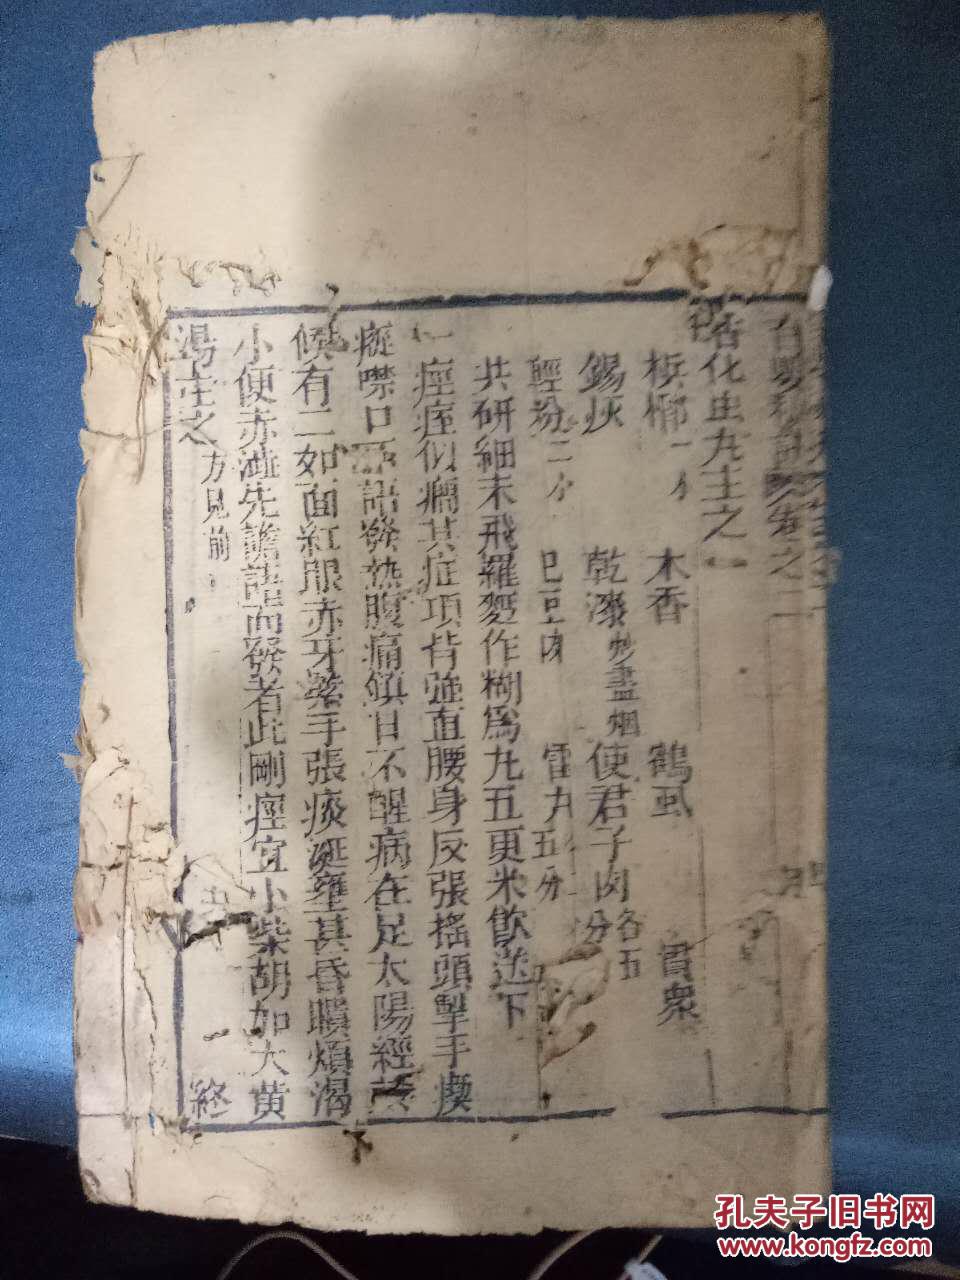 卷之二
者化虫丸主之
梹榔一 木香 鶴虱 貫衆
錫灰 乾漆炒盡烟 使君子肉各五分
輕粉二 巴豆肉 雷丸五分
共研細末飛羅麪作糊爲丸五更米飲送下
一痙痓似癎其症項背強直腰身反張搖頭掣手瘈
瘲噤口不語發熱腹痛鎮日不醒病在足太陽經其
候有二如面紅眼赤牙緊手張痰涎壅甚昏瞶煩渴
小便赤澁先譫語而發者此剛痙宜小柴胡加大黄
湯主之方見前 終
孔夫子旧书网
www.kongfz.com